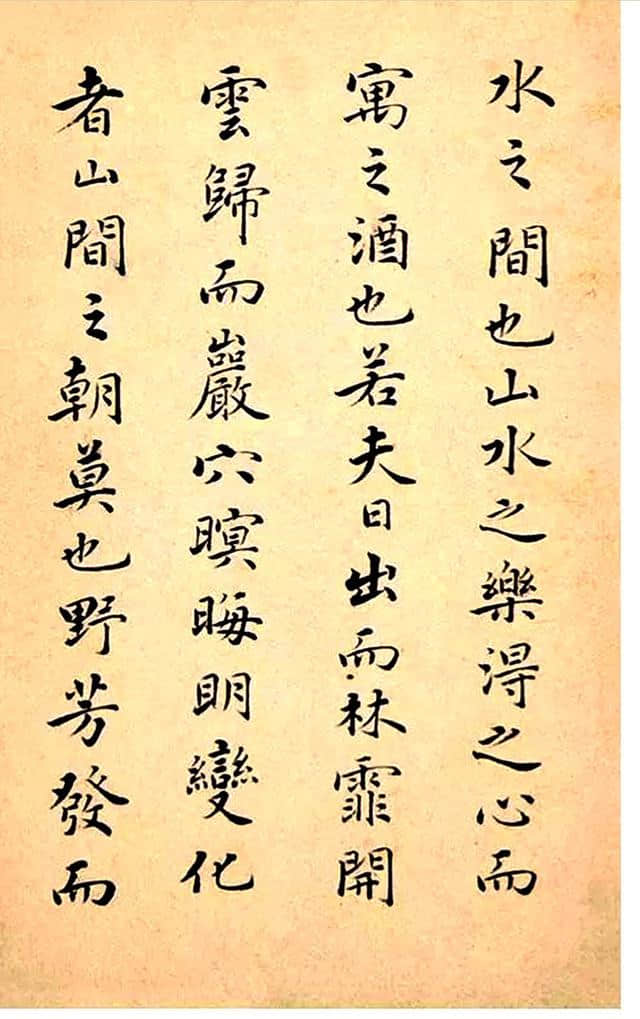 水之間也山水之樂得之心而
寓之酒也若夫日出而林霏開
雲歸而巖穴暝晦明變化
者山間之朝莫也野芳發而